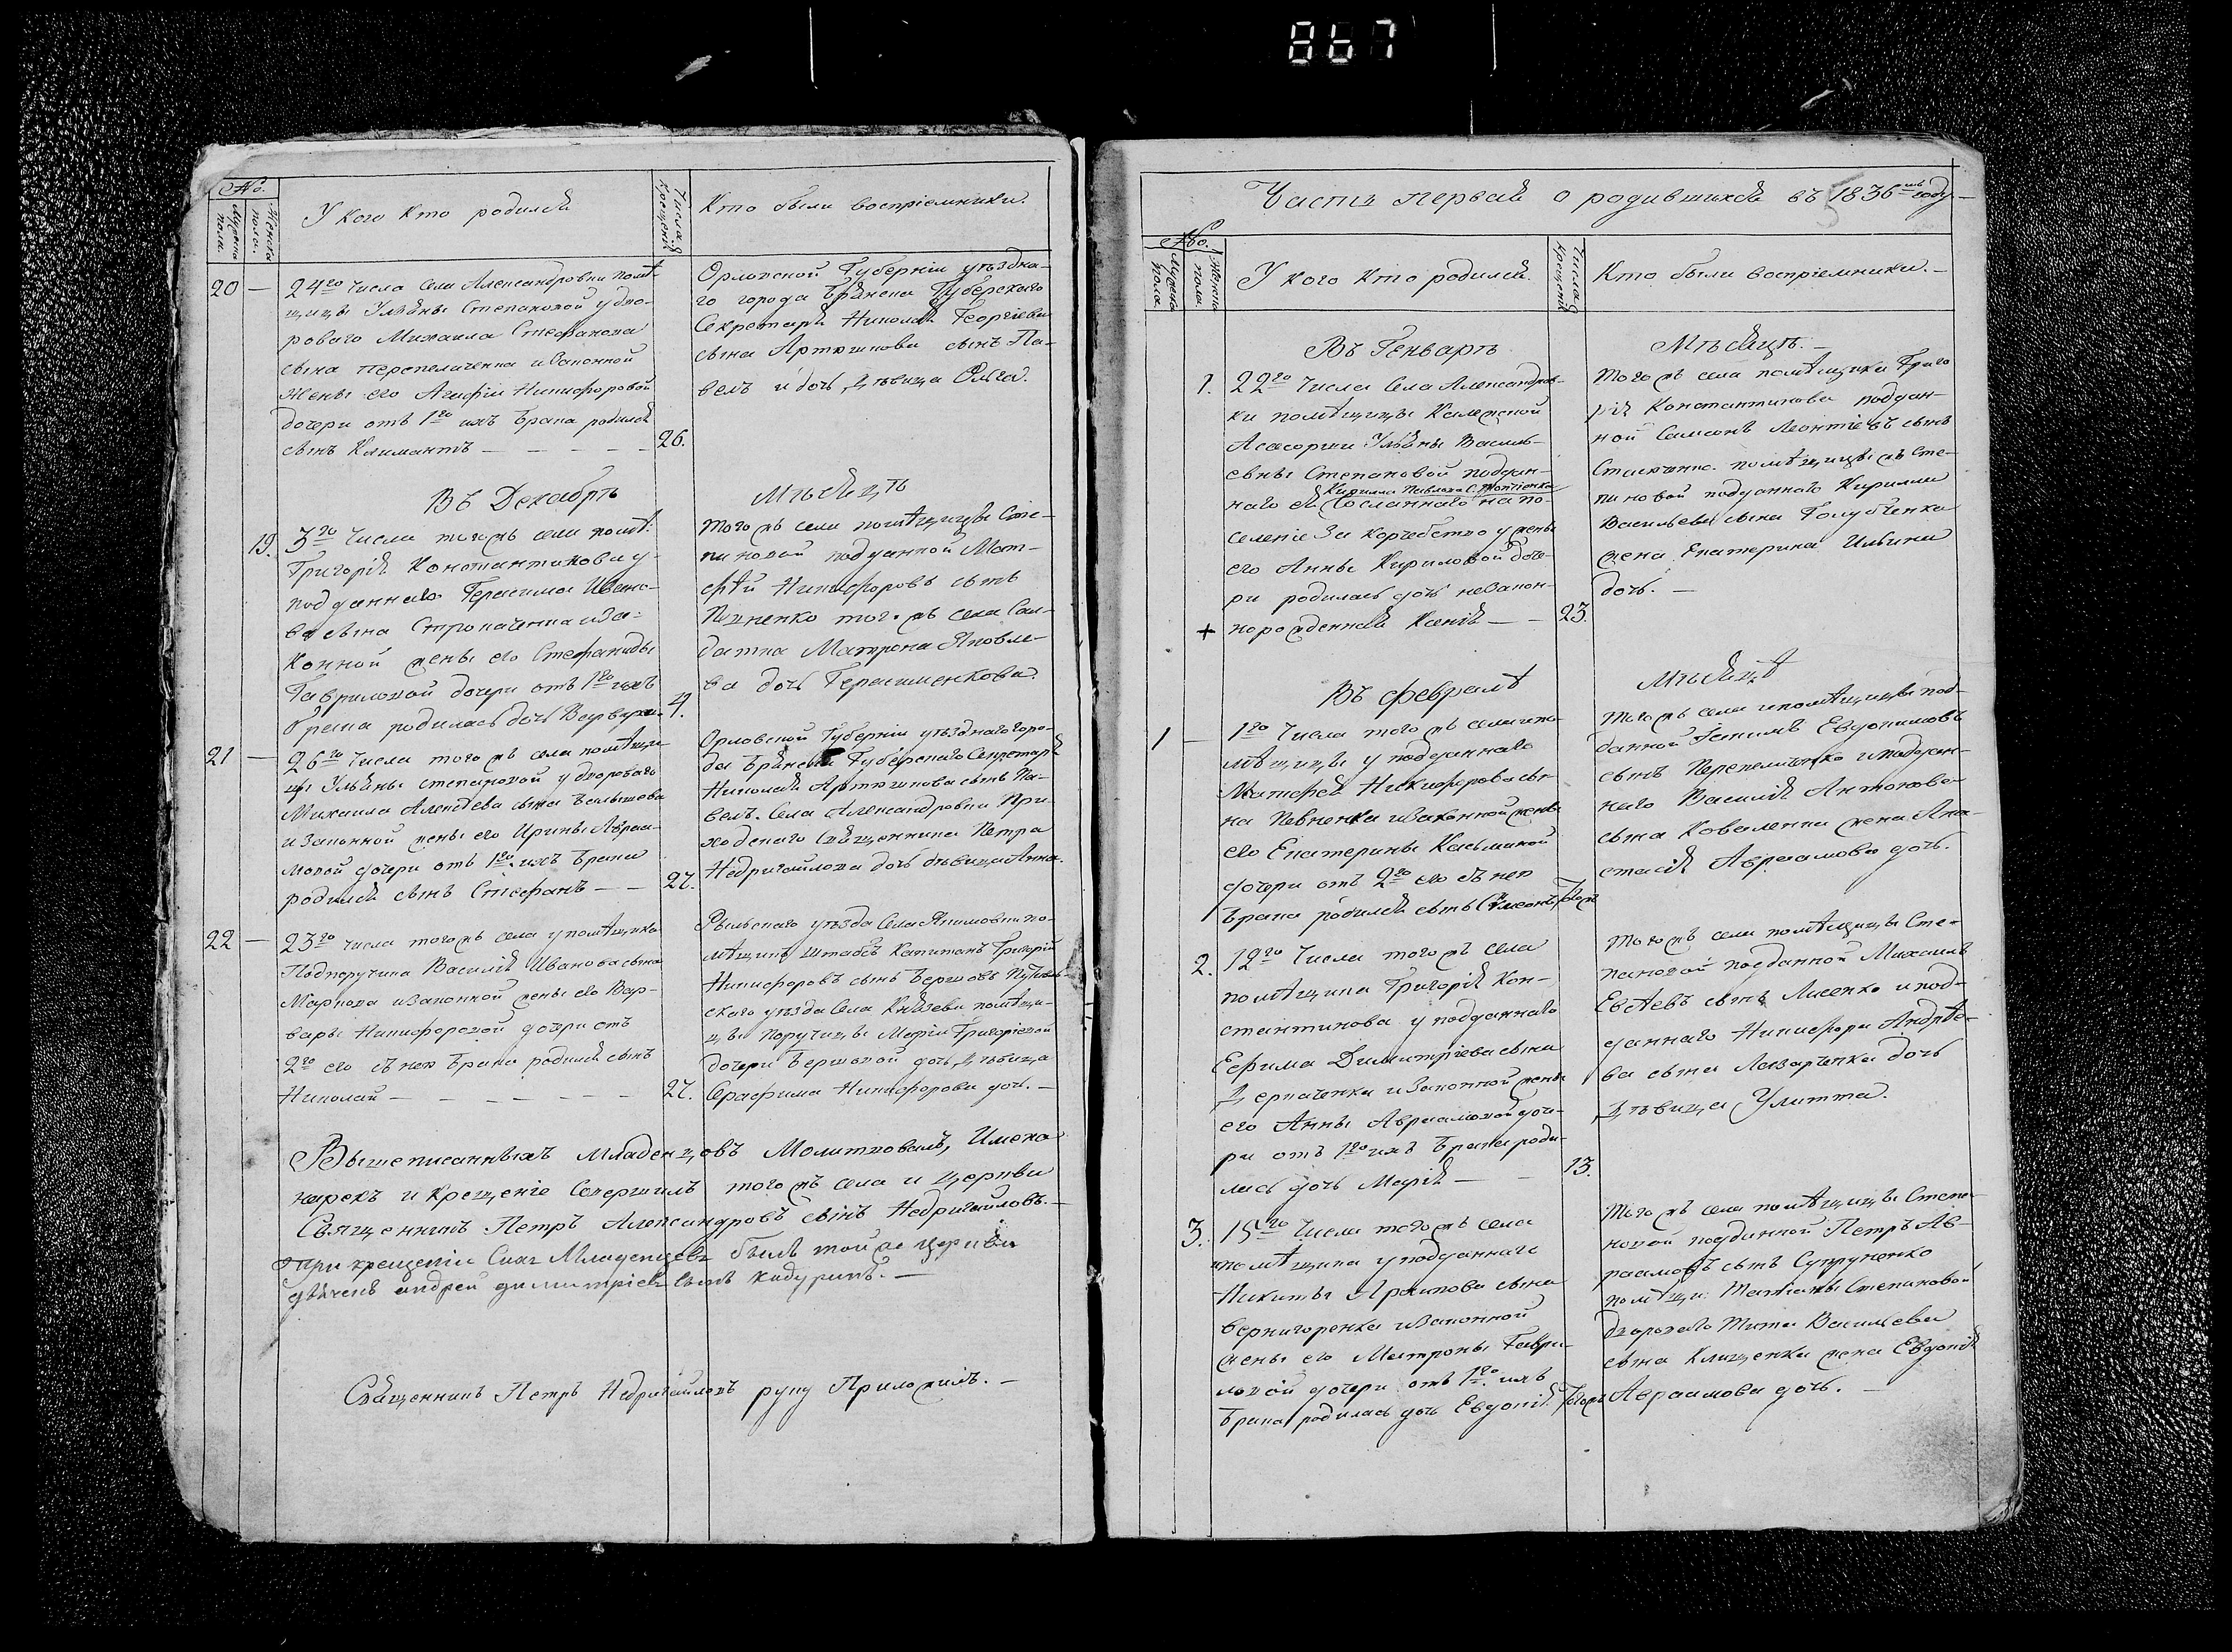 867
№.
Мужска пола.
Женска пола.
У кого кто родился
Числа Крещенія
Кто были воспріемники.
20 — 24го числа села Александровки помѣ-
щицы Ульяны Степановой у дво-
роваго Михаила Стефанова
сына Перепеличенка и законной
жены его Агафіи Никифоровой
дочери отъ 1го ихъ брака родился
сынъ Климантъ — — — — — 26.
Орловской Губерніи уѣздна-
го города Брянска Губерскаго
Секретаря Николая Георгіева
сына Артюшкова сынъ Па-
велъ и дочь дѣвица Ольга.
Въ Декабрѣ
Мѣсяцѣ
19. 3го числа того жъ села помѣ:
Григорія Константинова у
подданнаго Герасима Ивано-
ва сына Стропаченка и за-
конной жены его Стефаниды
Гавриловой дочери отъ 1го ихъ
брака родилась дочь Варвара. 4.
того жъ села помѣщицы Сте-
пановой подданной Мат-
фѣй Никифоровъ сынъ
Пѣвненко того жъ села Сол-
датка Матрона Яковле-
ва дочь Герасименкова.
21 — 26го числа того жъ села помѣщи-
цы Ульяны Степановой у двороваго
Михаила Алексѣева сына
и законной жены его Ирины Авраа-
мовой дочери отъ 1го ихъ брака
родился сынъ Стефанъ — — 27.
Орловской Губерніи уѣзднаго горо-
да Брянска Губерскаго Секретаря
Николая Артюшкова сынъ Па-
велъ. Села Александровки При-
ходскаго Священника Петра
Недригайлова дочь дѣвица Анна.
22 — 23го числа того жъ села у помѣщика
Подпоручика Василія Иванова сына
Маркова и законной жены его Вар-
вары Никифоровой дочери отъ
2го его съ нею брака родился сынъ
Николай — — — — — — 27.
Рыльскаго уѣзда Села Якимовки по-
мѣщикъ Штабсъ Капитанъ Григорій
Никифоровъ сынъ Бершовъ Путивль-
скаго уѣзда Села Князева помѣщи-
цы Поручицы Маріи Григоріевой
дочери Бершовой дочь дѣвица
Серафима Никифорова дочь. —
Вышеписанныхъ младенцовъ Молитвовалъ, Имена
нарекъ и Крещеніе Совершилъ того жъ села и церкви
Священникъ Петръ Александровъ сынъ Недригайловъ. —
При крещеніи Сихъ Младенцевъ былъ той же церкви
дьячекъ андрей димитріевъ сынъ кадуринъ. —
Священникъ Петръ Недригайловъ руку Приложилъ. —
Часть первая о родившихся въ 1836мъ году —
№.
Мужска пола.
Женска пола.
У кого кто родился.
Числа Крещенія
Кто были воспріемники. —
Въ Генварѣ
Мѣсяцѣ. —
1. 22го числа Села Александров-
ки помѣщицы Колежской
Асесорши Ульяны Василь-
евны Степановой поддан-
Кирила Павлова С.
наго ея Сосланнаго на по
селеніе за корчебство у жены
его Анны Кириловой доче-
ри родилась дочь незакон-
+ норожденная Ксенія — — 23.
Того жъ села помѣщика Григо
рія Константинова поддан-
ной Самсонъ Леонтіевъ сынъ
помѣщицы жъ Сте-
пановой подданнаго Кирила
Васильева сына Голубченка
жена Екатерина Ильина
дочь. —
Въ февралѣ
Мѣсяцѣ
1 — 1го числа того жъ села и по-
мѣщицы у подданнаго
Матфея Никифорова сы-
на Певненка и законной жены
его Екатерины Касьяновой
дочери отъ 2го его съ нею
брака родился сынъ Симеонъ, тогож
Того жъ села и помѣщицы под-
данной Іакимъ Евдокимовъ
сынъ Перепеличенко и поддан-
наго Василія Антонова
сына Коваленка жена Ана-
стасія Авраамова дочь.
2. 12го числа того жъ села
помѣщика Григорія Кон-
стантинова у подданнаго
Ефима Димитріева сына
Деркаченка и законной жены
его Анны Авраамовой доче-
ри отъ 1го ихъ брака роди-
лась дочь Марія — — 13.
Того жъ села помѣщицы Сте-
пановой подданной Михаилъ
Евсѣевъ сынъ Лисенко и под-
даннаго Никифора Андрѣе-
ва сына Лазарченка дочь
дѣвица Улитта.
3. 15го числа того жъ села
и помѣщика у подданнаго
Никиты Архипова сына
Вернигоренка и законной
жены его Матроны Гаври-
ловой дочери отъ 1го ихъ
брака родилась дочь Евдокія. тогож
Того жъ села помѣщицы Степа-
новой подданной Петръ Ав-
раамовъ сынъ Супруненко
помѣщи: Татіаны Степановой
двороваго Тита Васильева
сына Клищенка жена Евдокія
Авраамова дочь. —